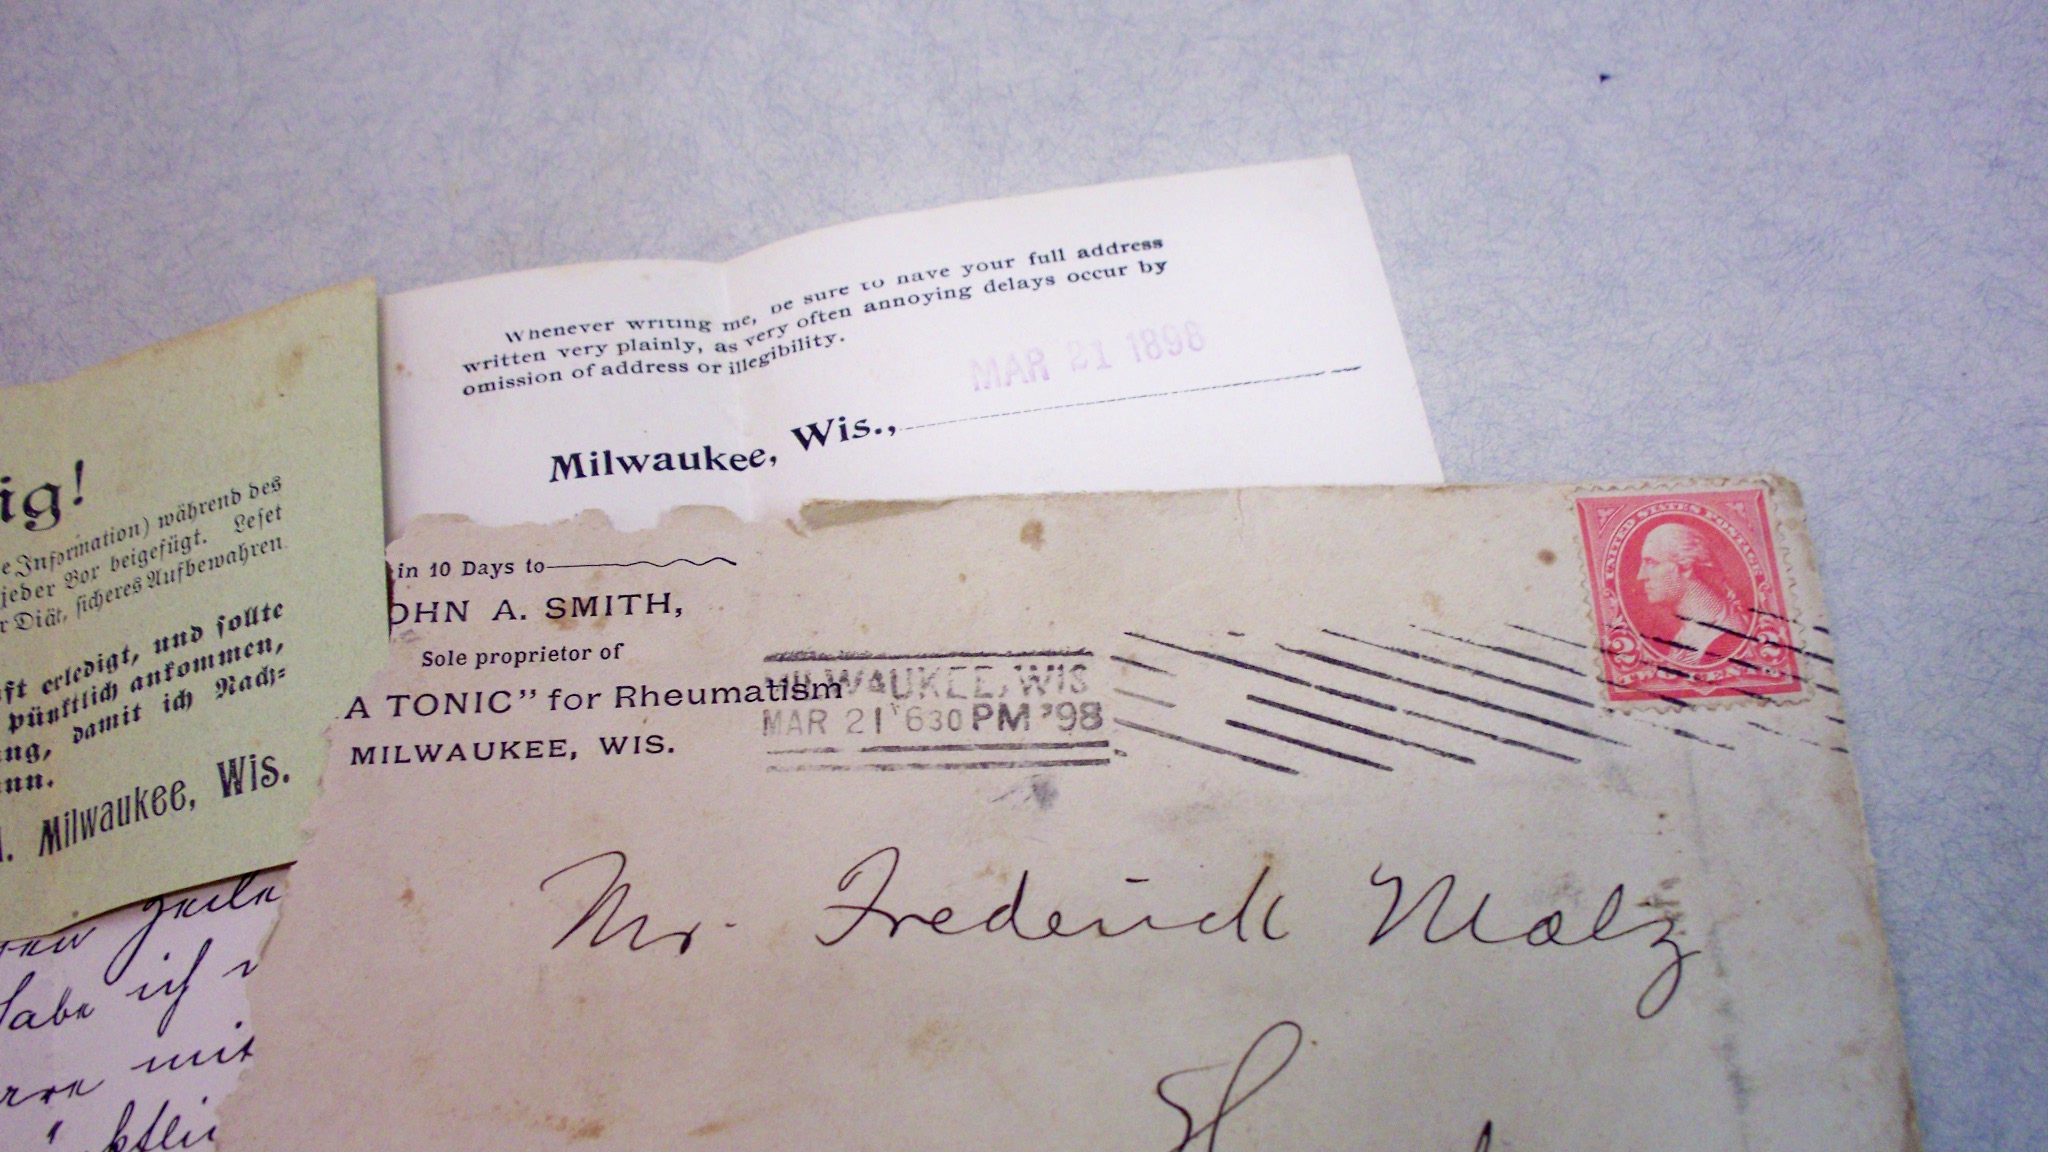 Whenever writing me, be sure to have your full address
written very plainly, as very often annoying delays occur by
omission of address or illegibility.
MAR 21 1898
Milwaukee, Wis.,
ig!
e Information) während des
jeder Box beigefügt. Leset
r Diät, sicheres Aufbewahren
ft erledigt, und sollte
pünktlich ankommen,
ng, damit ich Nach=
nn.
Milwaukee, Wis.
in 10 Days to
OHN A. SMITH,
Sole proprietor of
A TONIC" for Rheumatism
MILWAUKEE, WIS.
MILWAUKEE, WIS
MAR 21 630 PM '98
UNITED STATES POSTAGE
2 2
TWO CENTS
Mr. Frederick Malz
habe ich
mit